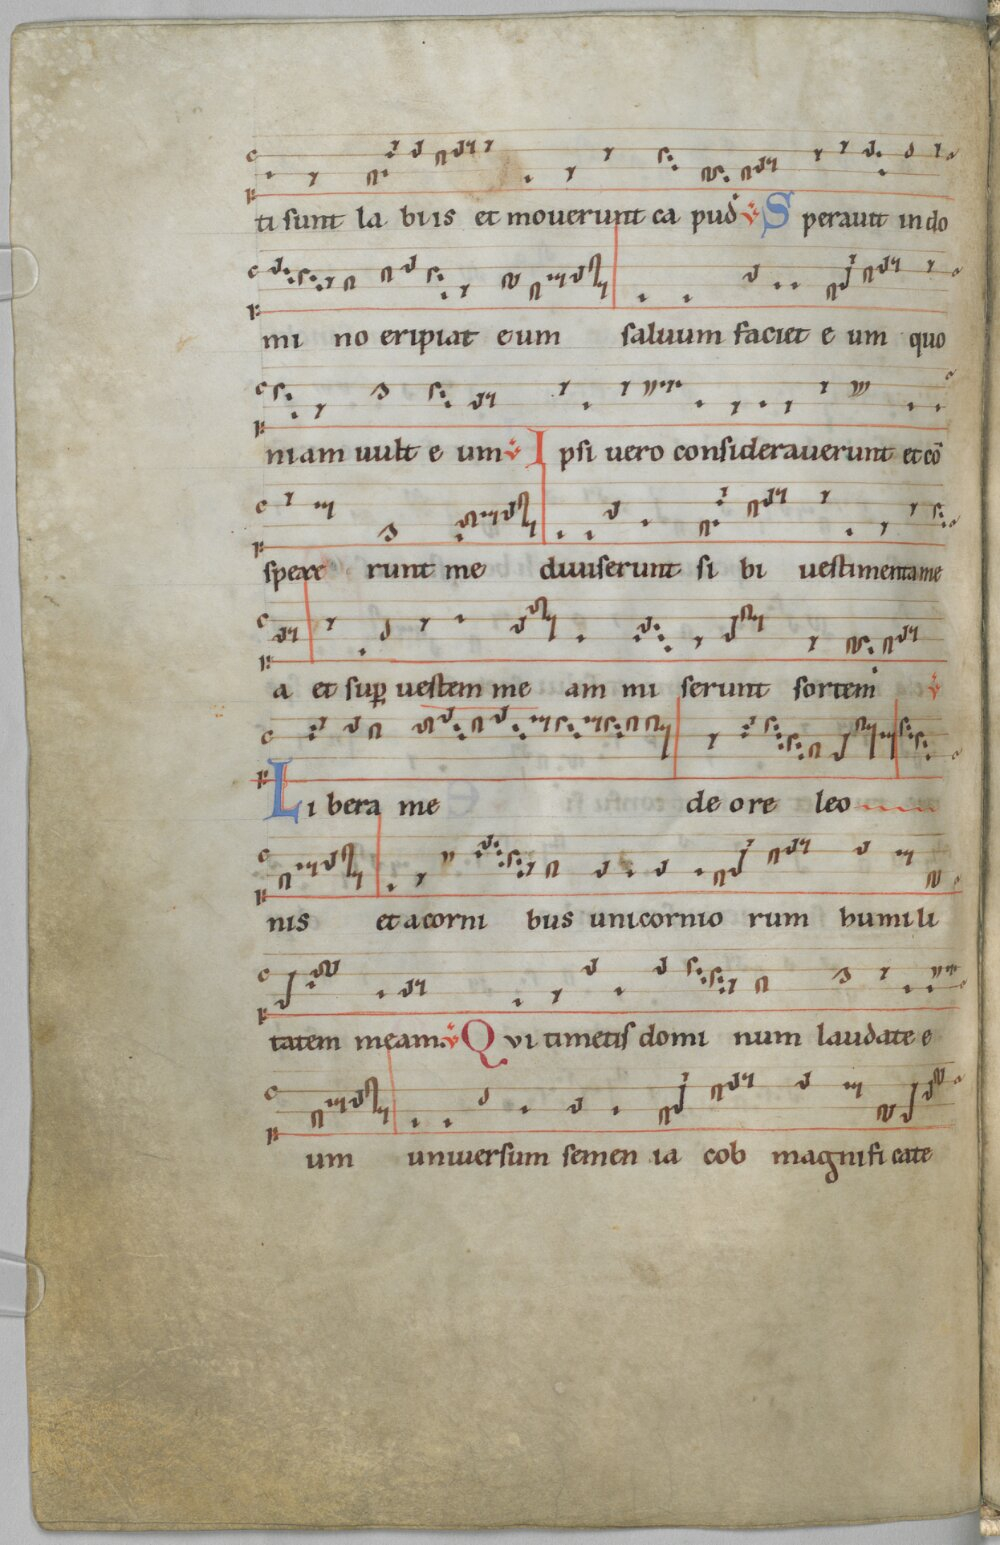 ti sunt la biis et moverunt ca pud ℣ S peravit in do
mi no eripiat eum salvum faciet e um quo
niam vult e um ℣ I psi vero consideraverunt et cō
spexe runt me diviserunt si bi vestimenta me
a et sup vestem me am mi serunt sortem ℣
L i bera me de ore leo
nis et a corni bus unicornio rum humili
tatem meam ℣ Q vi timetis domi num laudate e
um universum semen ia cob magnificate